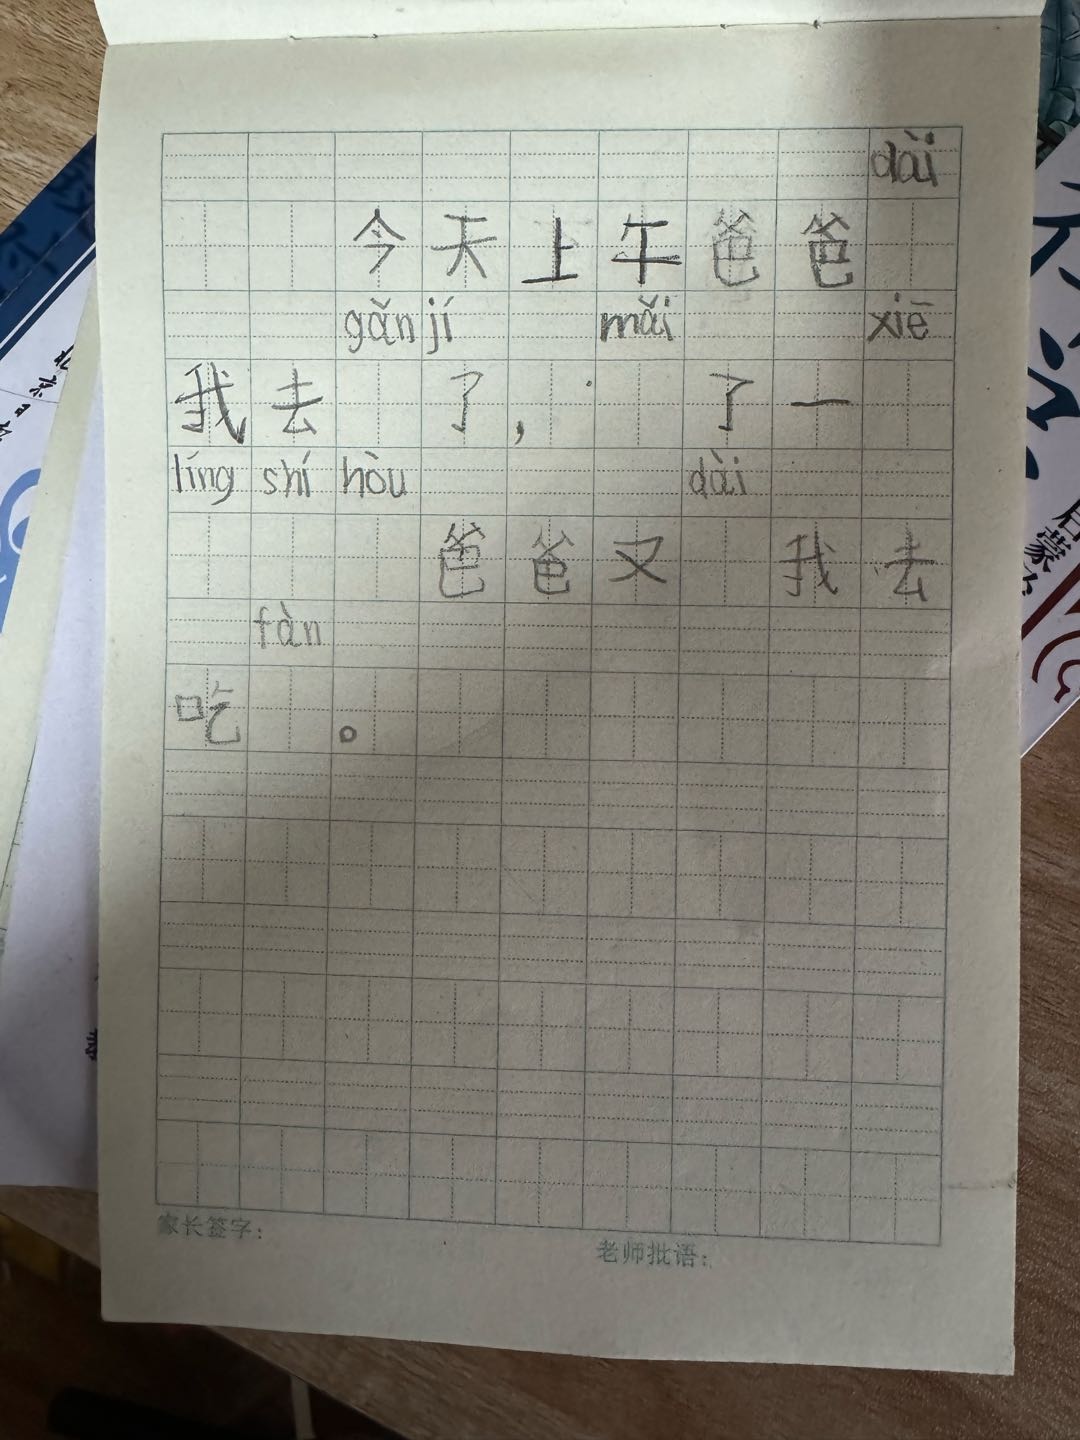 dài
今天上午爸爸
gǎn jí mǎi xiē
我去 了， 了一
líng shí hòu dài
爸爸又 我去
fàn
吃 。
家长签字：
老师批语：
启蒙